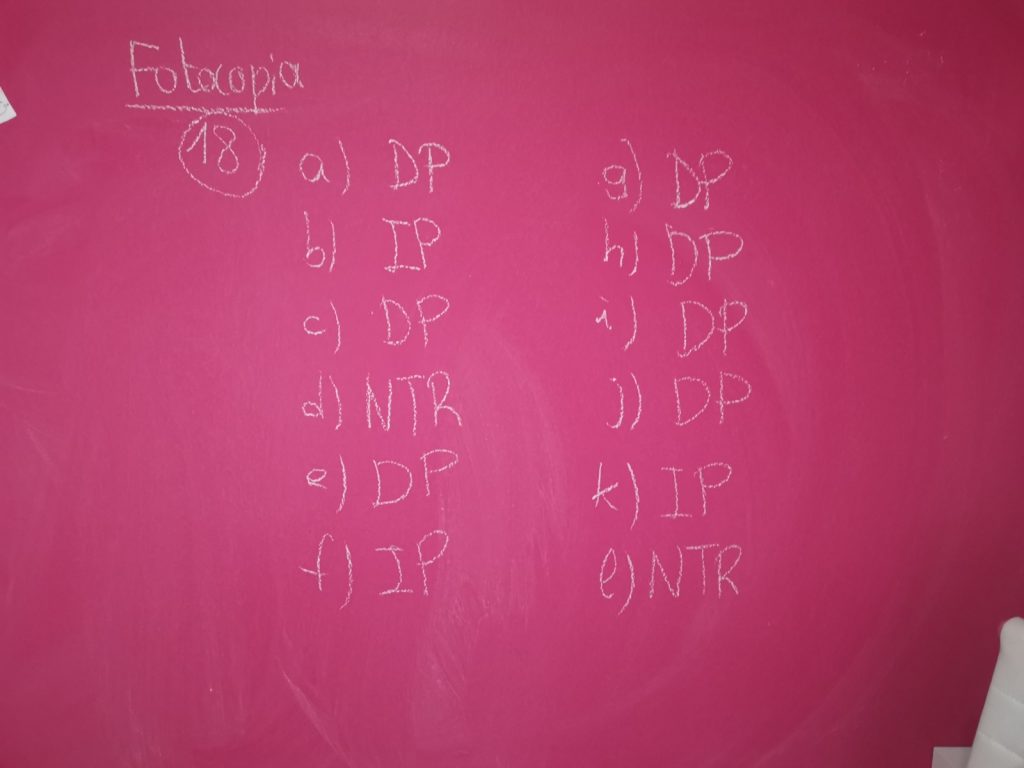 Fotocopia
18
a) DP
b) IP
c) DP
d) NTR
e) DP
f) IP
g) DP
h) DP
i) DP
j) DP
k) IP
l) NTR